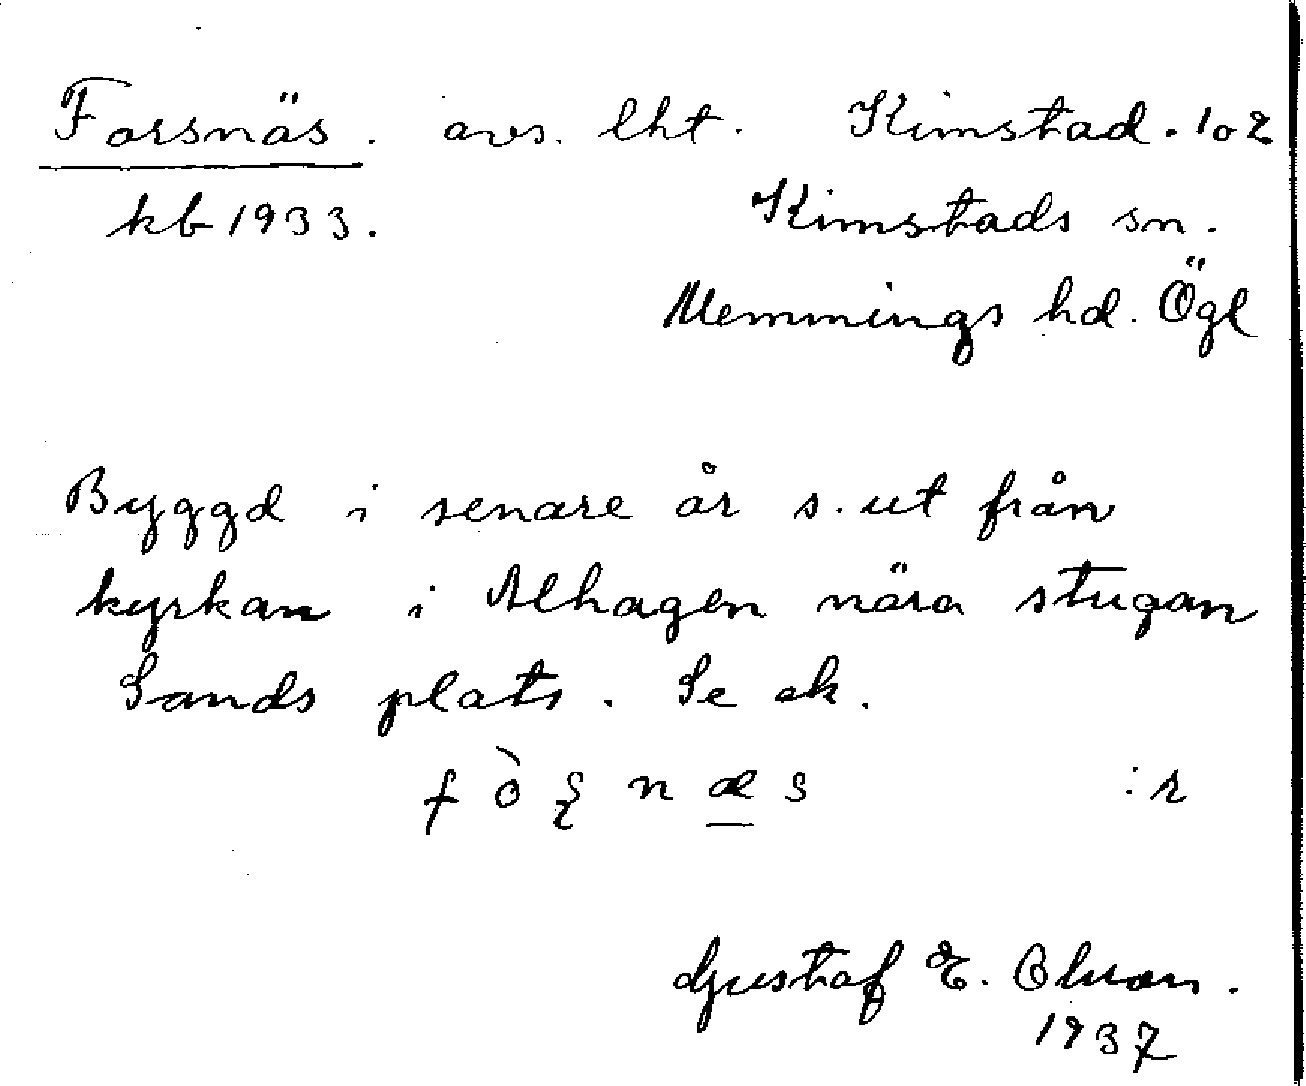 Forsnäs. avs. lht. Kimstad. 1o2
kb 1933. Kimstads sn.
Memmings hd. Ögl
Byggd i senare år s. ut från
kyrkan i Alhagen nära stugan
Sands plats. Se ek.
f ò n æ s :r
Gustaf E.
1937